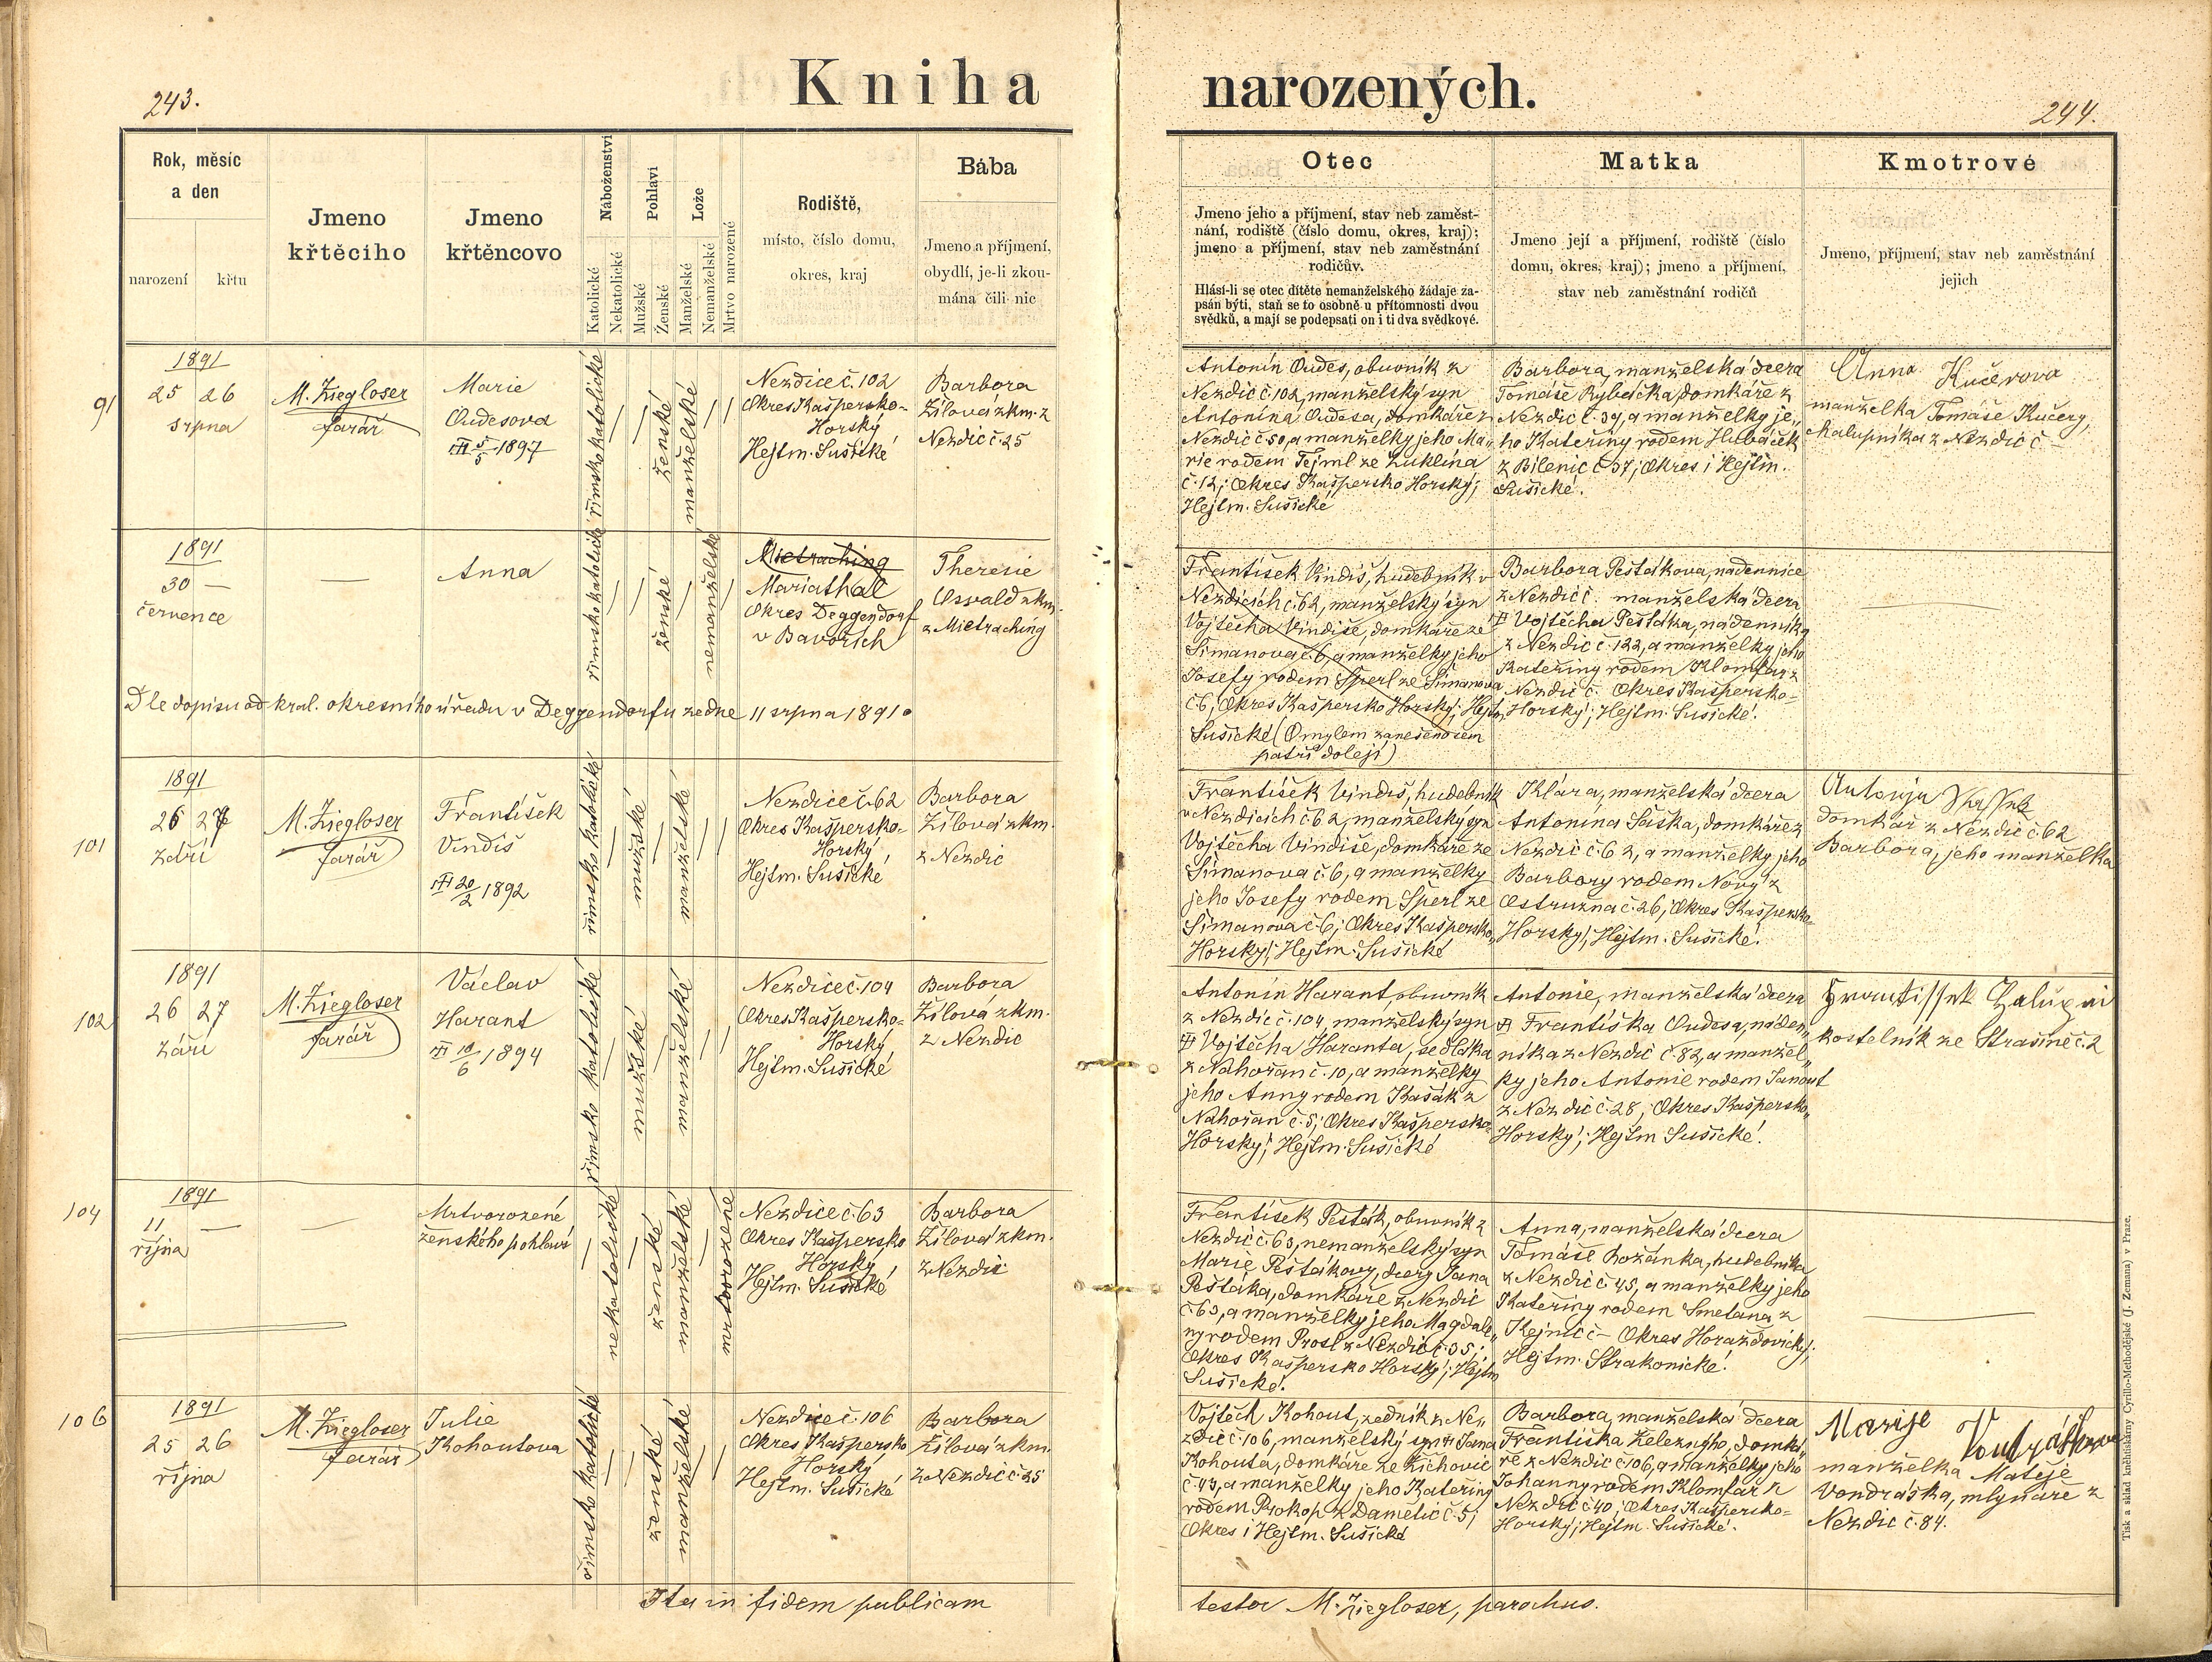 243.
Kniha
narozených.
244.
Rok, měsíc
a den
narození
křtu
Jmeno
křtěcího
Jmeno
křtěncovo
Náboženství
Katolické
Nekatolické
Pohlaví
Mužské
Ženské
Lože
Manželské
Nemanželské
Mrtvo narozené
Rodiště,
místo, číslo domu,
okres, kraj
Bába
Jmeno a příjmení,
obydlí, je-li zkou-
mána čili nic
Otec
Jmeno jeho a příjmení, stav neb zaměst-
nání, rodiště (číslo domu, okres, kraj);
jmeno a příjmení, stav neb zaměstnání
rodičův.
Hlásí-li se otec dítěte nemanželského žádaje za-
psán býti, staň se to osobně u přítomnosti dvou
svědků, a mají se podepsati on i ti dva svědkové.
Matka
Jmeno její a příjmení, rodiště (číslo
domu, okres, kraj); jmeno a příjmení,
stav neb zaměstnání rodičů
Kmotrové
Jmeno, příjmení, stav neb zaměstnání
jejich
91
1891
25 26
srpna
M. Ziegloser
farář
Marie
Oudesova
5/5 1897
římsko katolické
ženské
manželské
Nezdice č. 102
Okres Kašpersko-
Horský
Hejtm. Sušické
Barbora
Žílová zkm. z
Nezdic č. 25
Antonín Oudes, obuvník z
Nezdic č 102, manželský syn
Antonína Oudesa, domkáře z
Nezdic č 50, a manželky jeho Ma„
rie rodem Tejml ze Luklína
č. 12; Okres Kašpersko Horský;
Hejtm. Sušické
Barbora, manželská dcera
Tomáše Rybečka, domkáře z
Nezdic č. 39, a manželky je„
ho Kateřiny rodem Hubáček
z Bílenic č 37; Okres i Hejtm.
Sušické.
Anna Kučerova
manželka Tomáše Kučery,
chalupníka z Nezdic č –
1891
30 —
července
—
Anna
římsko katolické
ženské
nemanželské
Mietraching
Mariathal
Okres Deggendorf
v Bavořích
Theresie
Osvald zkm.
z Mietraching
Dle dopisu od kral. okresního úřadu v Deggendorfu ze dne 11 srpna 1891.
František Vindiš, hudebník v
Nezdicích č. 62, manželský syn
Vojtěcha Vindiše, domkáře ze
Šimanova č. 6, a manželky jeho
Josefy rodem Šperl ze Šimanova
č. 6, Okres Kašpersko Horský; Hejtm.
Sušické (Omylem zanešeno sem
patří doleji)
Barbora Pešťákova, nádennice
z Nezdic č. manželská dcera
Vojtěcha Pešťáka, nádenníka
z Nezdic č. 122, a manželky jeho
Kateřiny rodem Klomfar z
Nezdic č. Okres Kašpersko-
Horský; Hejtm. Sušické.
—
101
1891
26 27
září
M. Ziegloser
farář
František
Vindiš
20/2 1892
římsko katolické
mužské
manželské
Nezdice č. 62
Okres Kašpersko-
Horský
Hejtm. Sušické
Barbora
Žílová zkm.
z Nezdic
František Vindiš, hudebník
v Nezdicích č 62, manželský syn
Vojtěcha Vindiše, domkáře ze
Šimanova č. 6, a manželky
jeho Josefy rodem Šperl ze
Šimanova č. 6; Okres Kašpersko„
Horský; Hejtm. Sušické
Klára, manželská dcera
Antonína Sáska, domkáře z
Nezdic č. 62, a manželky jeho
Barbory rodem Nový z
Ostružna č. 26; Okres Kašpersko-
Horský; Hejtm. Sušické.
domkář z Nezdic č. 62
Barbora, jeho manželka
102
1891
26 27
září
M. Ziegloser
farář
Václav
Harant
10/6 1894
římsko katolické
mužské
manželské
Nezdice č. 104
Okres Kašpersko-
Horský
Hejtm. Sušické
Barbora
Žílová zkm.
z Nezdic
Antonín Harant, obuvník
z Nezdic č. 104, manželský syn
Vojtěcha Haranta, sedláka
z Nahořan č. 10, a manželky
jeho Anny rodem Kašák z
Nahořan č. 5; Okres Kašpersko-
Horský; Hejtm. Sušické
Antonie, manželská dcera
Františka Oudesa, náden„
níka z Nezdic č. 82, a manžel„
ky jeho Antonie rodem Janout
z Nezdic č. 28; Okres Kašpersko„
Horský; Hejtm Sušické.
kostelník ze Strašíně č. 2
104
1891
11 —
října
—
Mrtvorozené
ženského pohlaví
nekatolické
ženské
manželské
mrtvorozené
Nezdice č. 63
Okres Kašpersko
Horský
Hejtm. Sušické
Barbora
Žílová zkm.
z Nezdic
František Pešták, obuvník z
Nezdic č. 63, nemanželský syn
Marie Peštákovy, dcery Jana
Peštáka, domkáře z Nezdic
č. 63, a manželky jeho Magdale„
ny rodem Prosl z Nezdic č. 35;
Okres Kašpersko Horský; Hejtm
Sušické.
Anna, manželská dcera
Tomáše Božánka, hudebníka
z Nezdic č 45, a manželky jeho
Kateřiny rodem Smetana z
Kejnic č – Okres Horažďovický;
Hejtm. Strakonické.
—
106
1891
25 26
října
M. Ziegloser
farář
Julie
Kohoutova
římsko katolické
ženské
manželské
Nezdice č. 106
Okres Kašpersko
Horský
Hejtm. Sušické
Barbora
Žílová zkm.
z Nezdic č 25
Vojtěch Kohout, zedník z Nez„
zdic č. 106, manželský syn Jana
Kohouta, domkáře ze Žichovic
č. 43, a manželky jeho Kateřiny
rodem Prokop z Damětic č. 5;
Okres i Hejtm. Sušické
Barbora, manželská dcera
Františka Železného, domká„
ře z Nezdic č 106, a manželky jeho
Johanny rodem Klomfar z
Nezdic č 40; Okres Kašpersko-
Horský; Hejtm. Sušické.
Marije Vondráškova
manželka Matěje
Vondráška, mlynáře z
Nezdic č. 84.
Ita in fidem publicam
testor M. Ziegloser, parochus.
Tisk a sklad knihtiskárny Cyrillo-Methodějské (J. Zeman) v Praze.